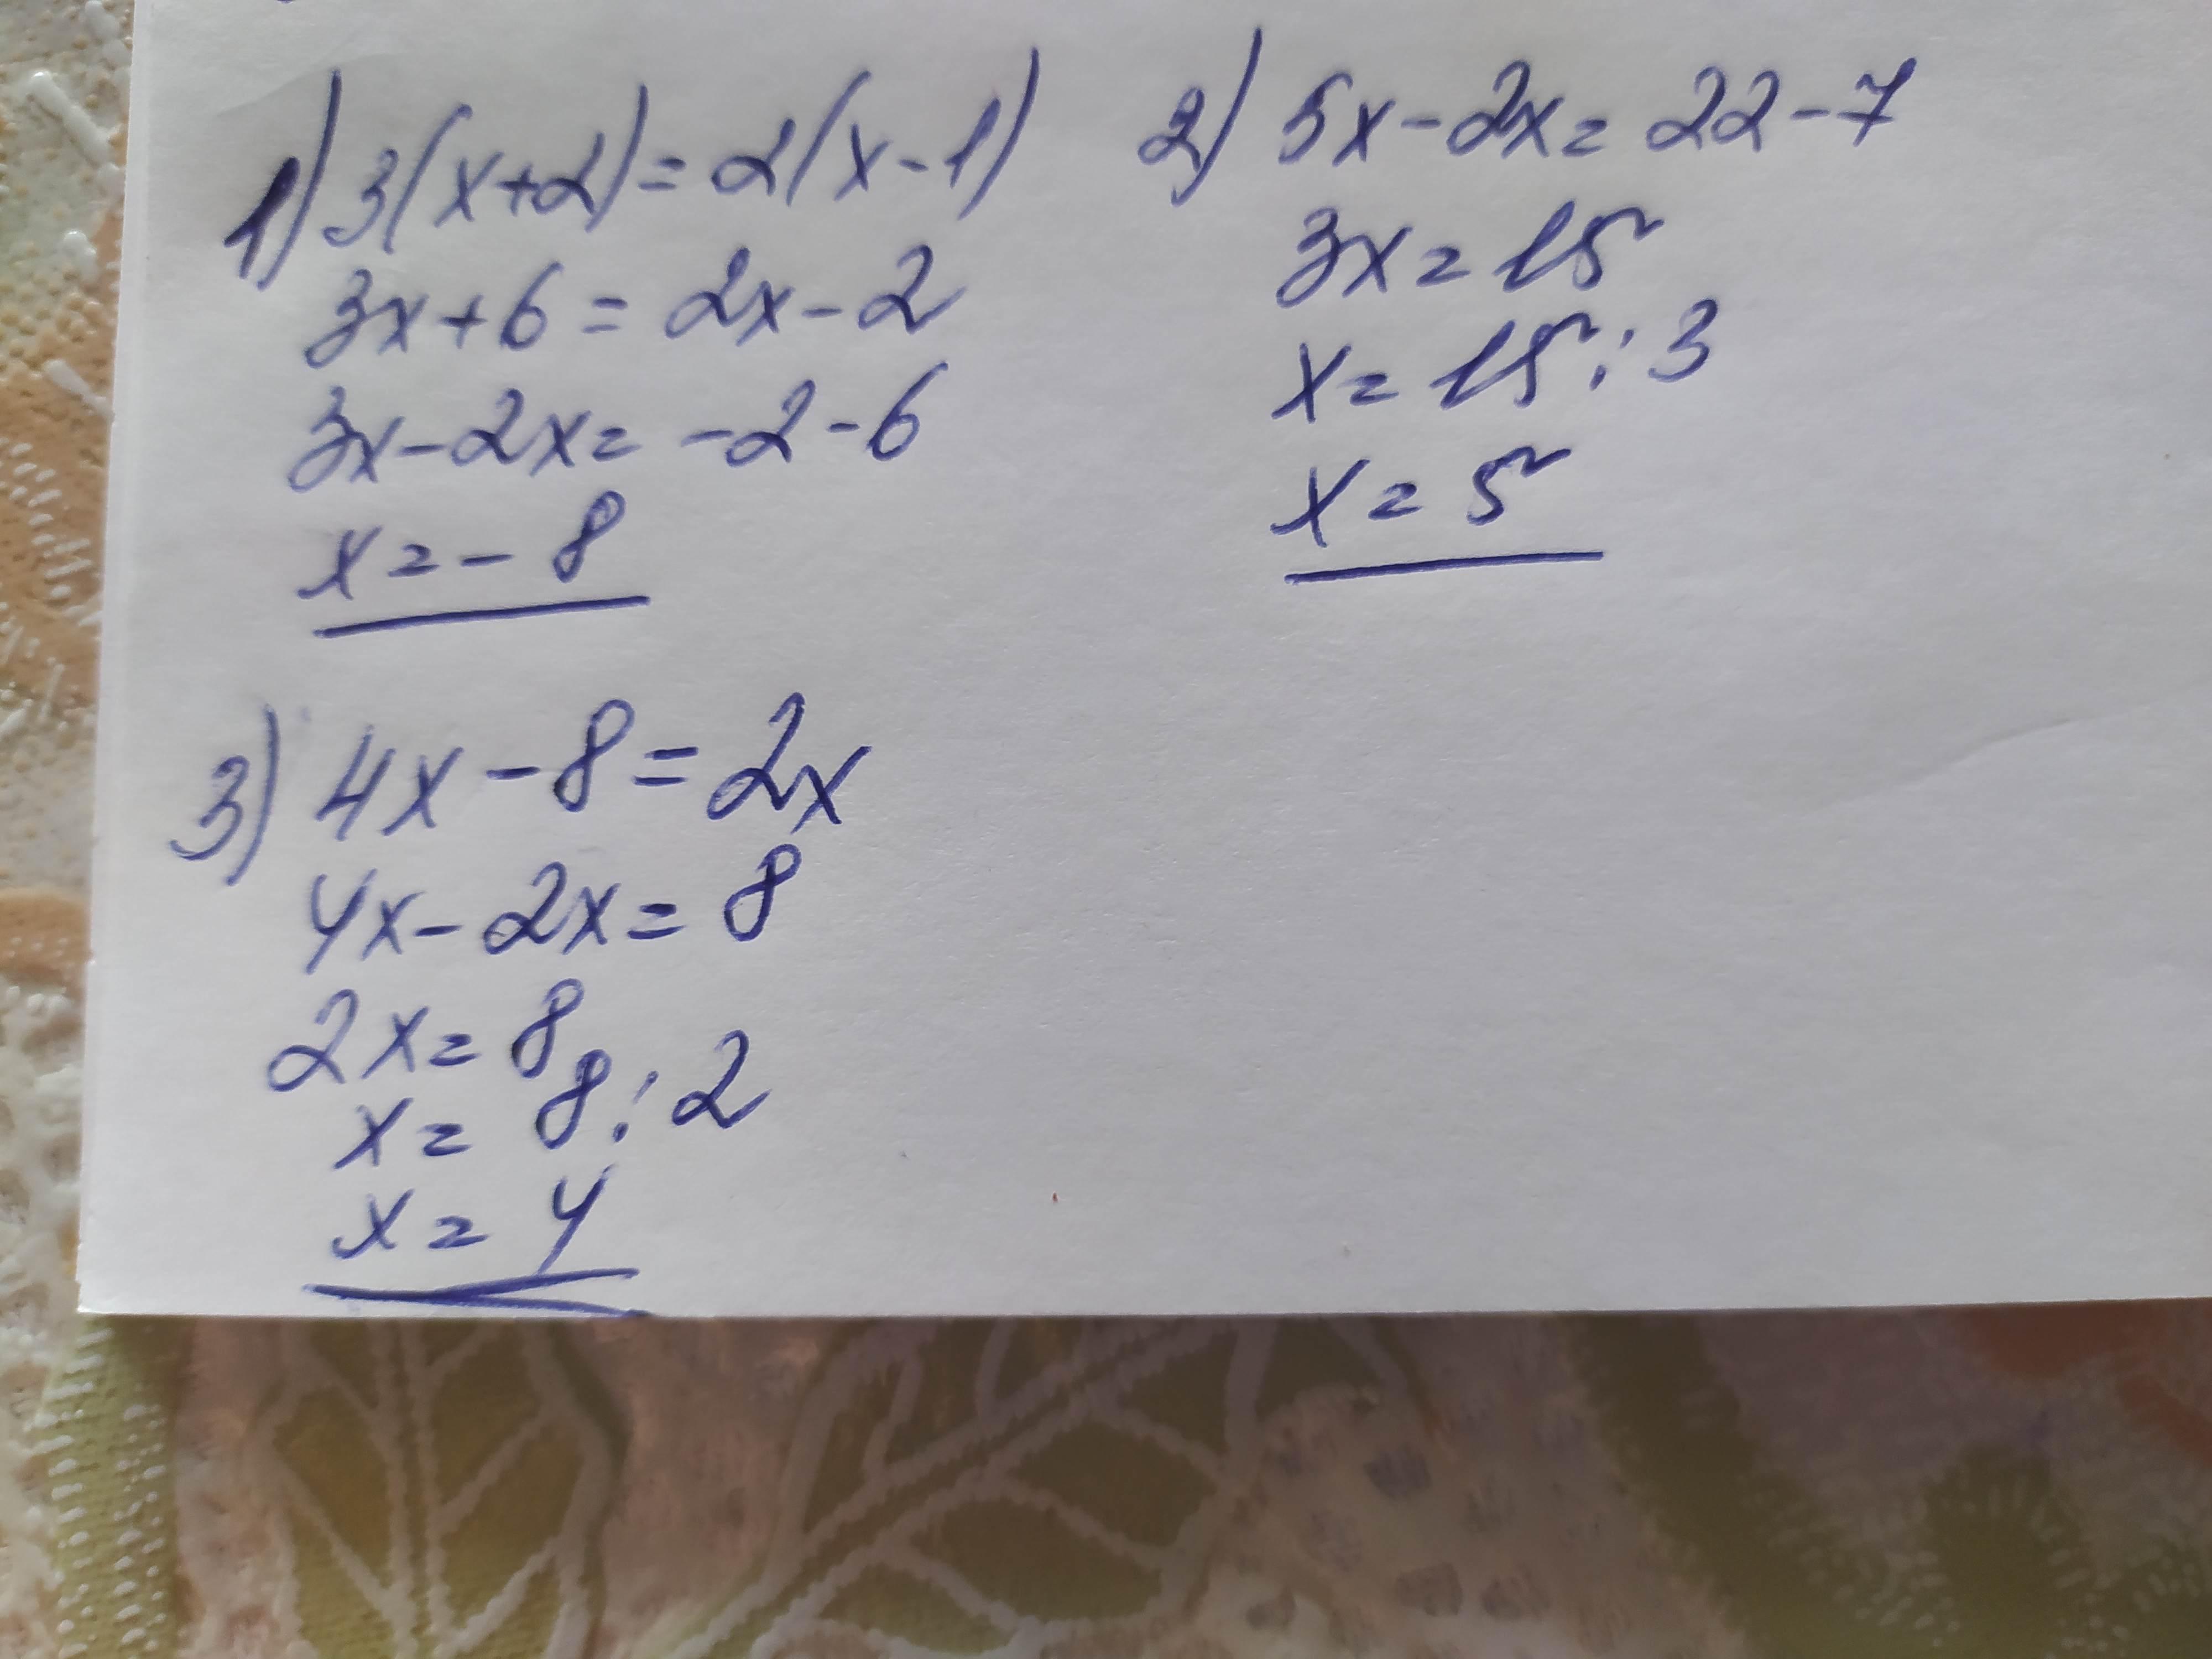 1) 3(x+2)=2(x-1)
3x+6=2x-2
3x-2x=-2-6
x=-8
2) 5x-2x=22-7
3x=15
x=15:3
x=5
3) 4x-8=2x
4x-2x=8
2x=8
x=8:2
x=4